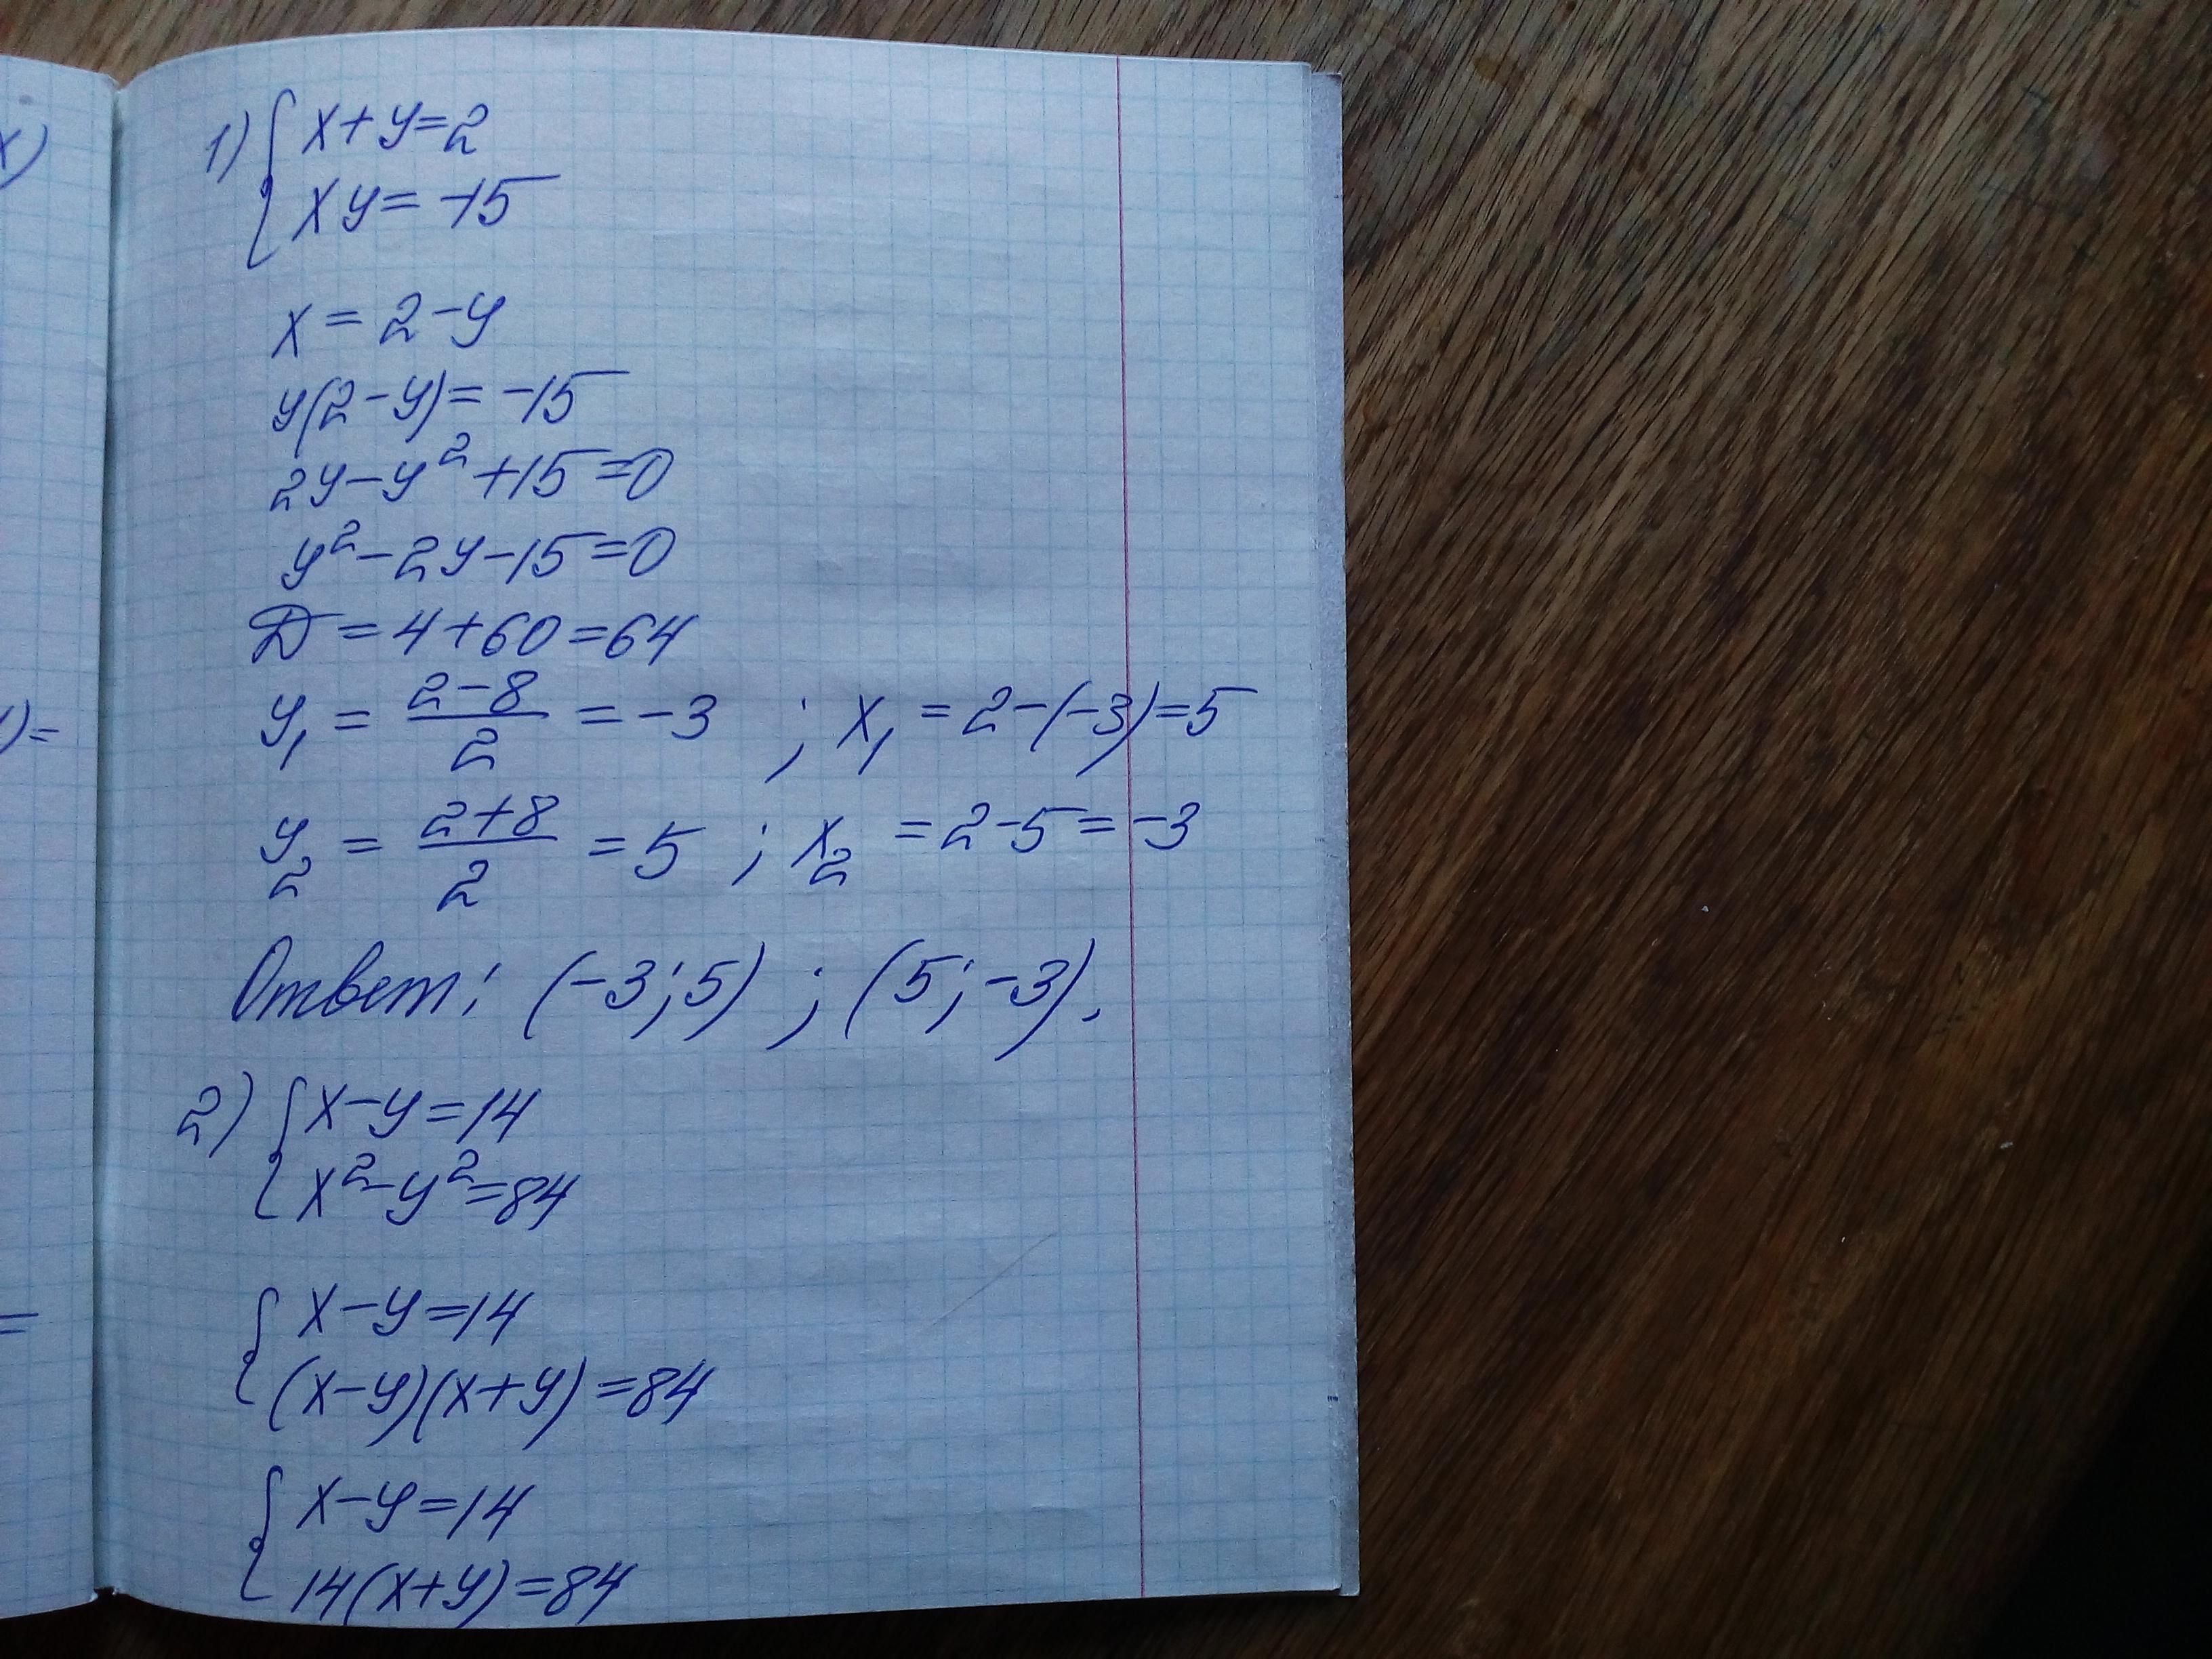 1) { x+y=2
xy=-15
x=2-y
y(2-y)=-15
2y-y²+15=0
y²-2y-15=0
Д=4+60=64
y₁ = (2-8)/2 = -3 ; x₁ = 2-(-3)=5
y₂ = (2+8)/2 = 5 ; x₂ = 2-5=-3
Ответ: (-3;5) ; (5;-3).
2) { x-y=14
x²-y²=84
{ x-y=14
(x-y)(x+y)=84
{ x-y=14
14(x+y)=84